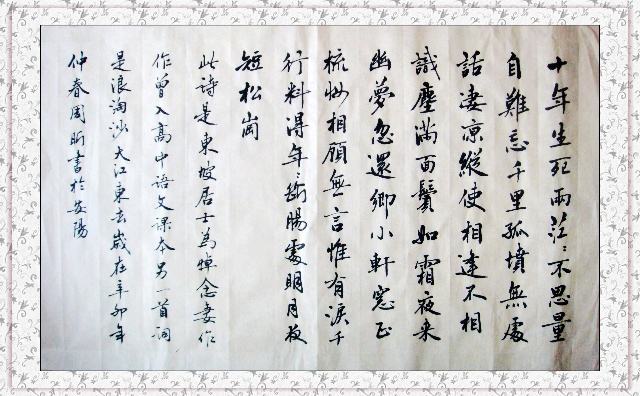 十年生死兩茫々不思量
自難忘千里孤墳無處
話淒凉縱使相逢不相
識塵滿面鬢如霜夜来
幽夢忽還鄉小軒窗正
梳妝相顧無言惟有淚千
行料得年々斷腸處明月夜
短松崗
此詩是東坡居士為悼念妻作
作曾入高中語文課本另一首詞
是浪淘沙大江東去歲在辛卯年
仲春周昕書於安陽